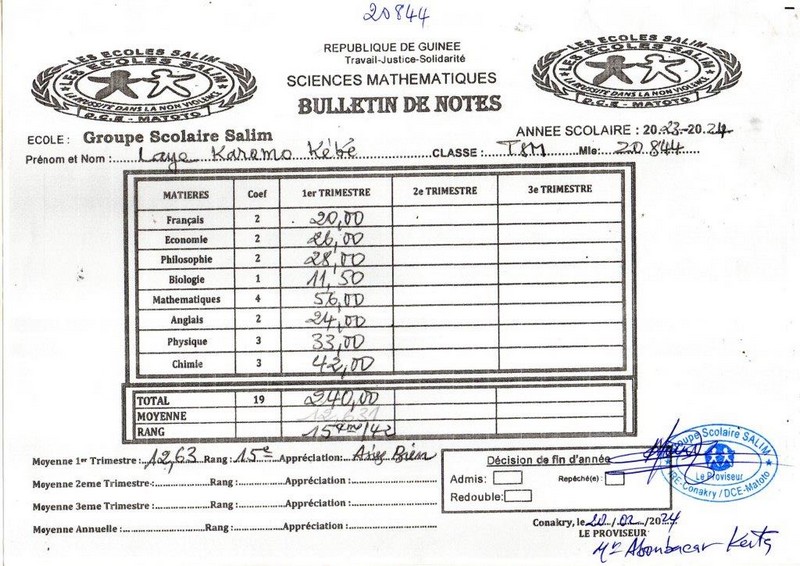 20844
LES ECOLES SALIM
LES ECOLES SALIM
LA REUSSITE DANS LA NON VIOLENCE
D.C.E - MATOTO
REPUBLIQUE DE GUINEE
Travail-Justice-Solidarité
SCIENCES MATHEMATIQUES
BULLETIN DE NOTES
LES ECOLES SALIM
LES ECOLES SALIM
LA REUSSITE DANS LA NON VIOLENCE
D.C.E - MATOTO
ECOLE : Groupe Scolaire Salim ANNEE SCOLAIRE : 2023-2024
Prénom et Nom : Laye Karamo Kébé CLASSE : TSM Mle: 20844
MATIERES Coef 1er TRIMESTRE 2e TRIMESTRE 3e TRIMESTRE
Français 2 20,00
Economie 2 26,00
Philosophie 2 28,00
Biologie 1 11,50
Mathematiques 4 56,00
Anglais 2 24,00
Physique 3 33,00
Chimie 3 42,00
TOTAL 19 240,00
MOYENNE 12,631
RANG 15eme/42
Moyenne 1er Trimestre : 12,63 Rang : 15e Appréciation: Assez Bien
Moyenne 2eme Trimestre : Rang : Appréciation:
Moyenne 3eme Trimestre : Rang : Appréciation:
Moyenne Annuelle : Rang : Appréciation:
Décision de fin d'année
Admis: Repêché(e) :
Redouble:
Groupe Scolaire SALIM
Le Proviseur
IRE-Conakry / DCE-Matoto
Conakry, le 20 / 02 / 2024
LE PROVISEUR
Mr Aboubacar Keita